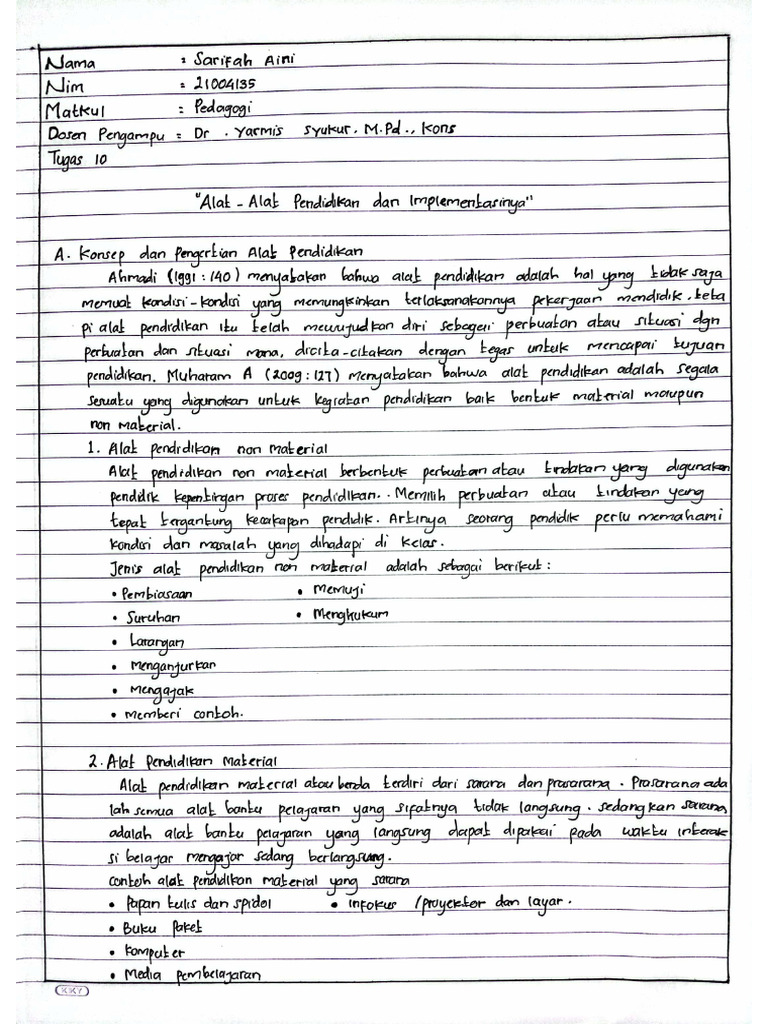 Nama : Sarifah Aini
Nim : 21004135
Matkul : Pedagogi
Dosen Pengampu : Dr . Yarmis Syukur. M.Pd., Kons
Tugas 10
"Alat - Alat Pendidikan dan Implementasinya"
A. Konsep dan Pengertian Alat Pendidikan
Ahmadi (1991 : 140) menyatakan bahwa alat pendidikan adalah hal yang tidak saja
memuat kondisi-kondisi yang memungkinkan terlaksanakannya pekerjaan mendidik, teta
pi alat pendidikan itu telah mewujudkan diri sebagai perbuatan atau situasi dgn
perbuatan dan situasi mana, dicita-citakan dengan tegas untuk mencapai tujuan
pendidikan. Muharam A (2009 : 127) menyatakan bahwa alat pendidikan adalah segala
sesuatu yang digunakan untuk kegiatan pendidikan baik bentuk material maupun
non material.
1. Alat pendidikan non material
Alat pendidikan non material berbentuk perbuatan atau tindakan yang digunakan
pendidik kepentingan proses pendidikan.. Memilih perbuatan atau tindakan yang
tepat tergantung kecakapan pendidik. Artinya seorang pendidik perlu memahami
kondisi dan masalah yang dihadapi di kelas.
Jenis alat pendidikan non material adalah sebagai berikut :
• Pembiasaan • Memuji
• Suruhan • Menghukum
• Larangan
• Menganjurkan
• Mengajak
• Memberi contoh.
2. Alat Pendidikan Material
Alat pendidikan material atau benda terdiri dari sarana dan prasarana . Prasarana ada
lah semua alat bantu pelajaran yang sifatnya tidak langsung. sedangkan sarana
adalah alat bantu pelajaran yang langsung dapat dipakai pada waktu interak
si belajar mengajar sedang berlangsung.
contoh alat pendidikan material yang sarana
• Papan tulis dan spidol • Infokus /proyektor dan layar.
• Buku Paket
• Komputer
• Media pembelajaran
KKY